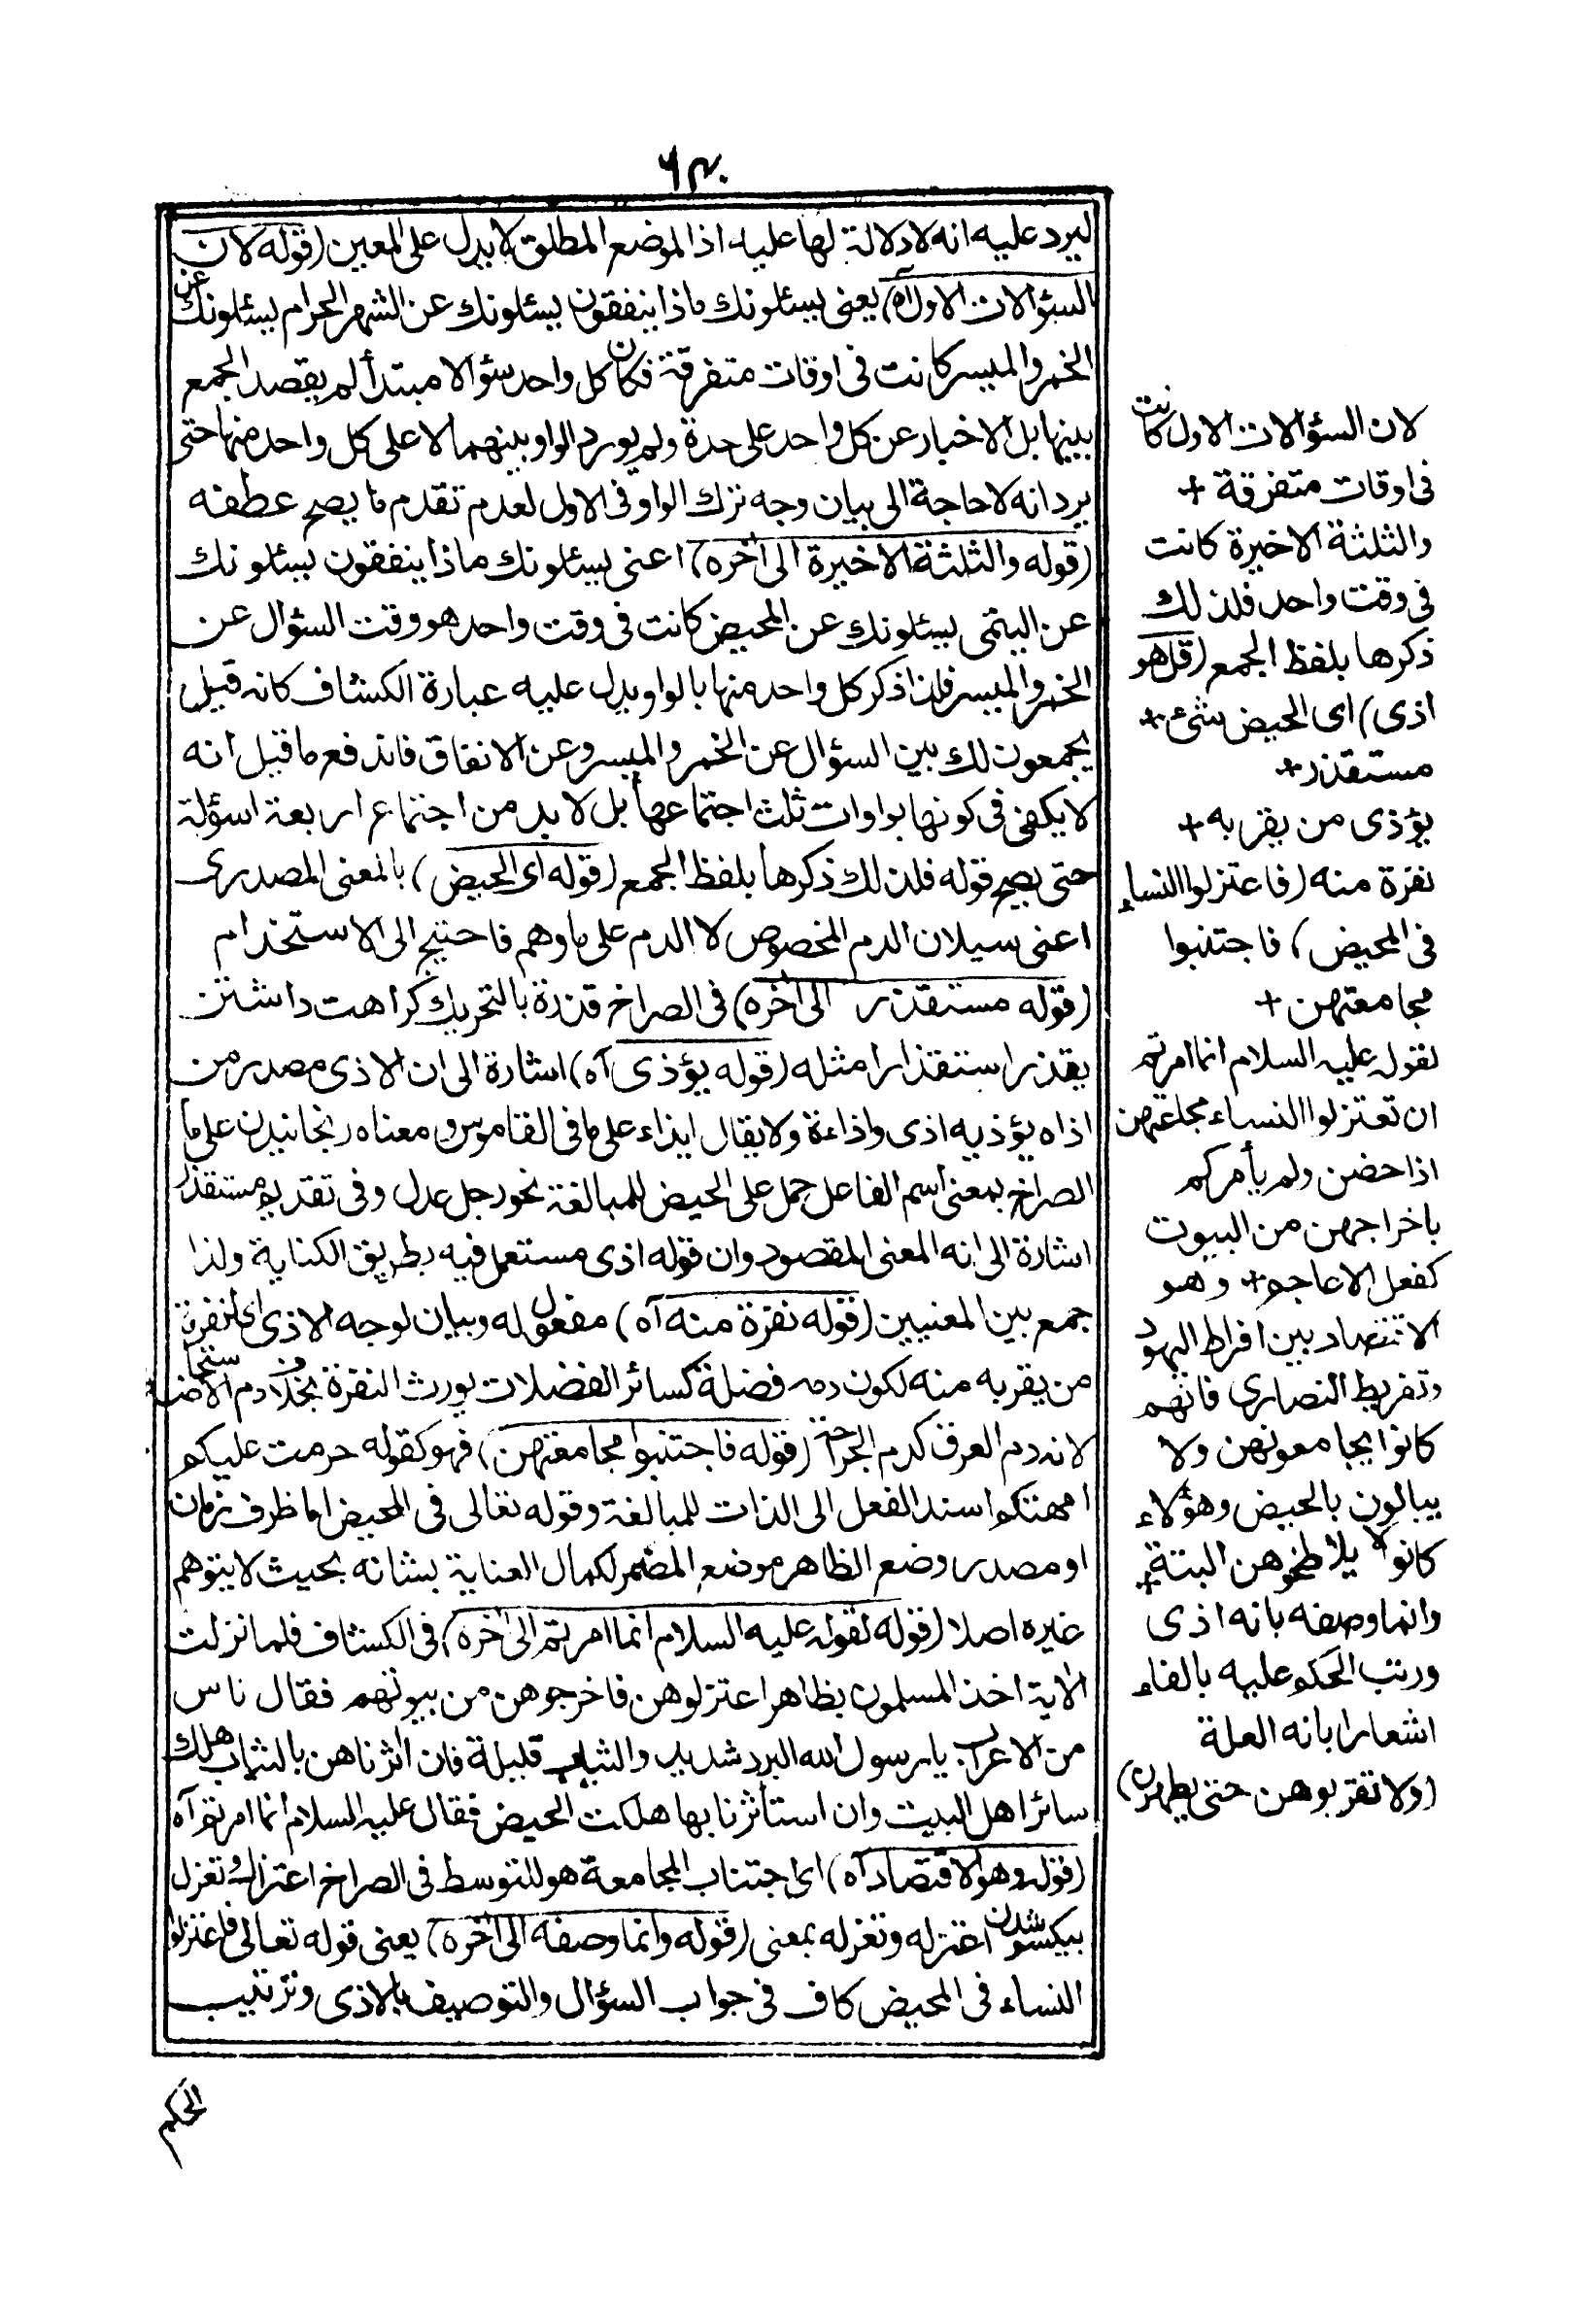 ٦٣٠
ليرد عليه انه لا دلالة لها عليه اذ الموضع المطلق لا يدل على المعين (قوله لان
السؤالات الاول آه) يعنى يسئلونك ماذا ينفقون يسئلونك عن الشهر الحرام يسئلونك عن
الخمر والميسر كانت فى اوقات متفرقة فكان كل واحد سؤالا مبتدأ لم يقصد الجمع
بينها بل الاخبار عن كل واحد على حدة ولم يورد الواو بينهما لا على كل واحد منها حتى
يرد انه لا حاجة الى بيان وجه ترك الواو فى الاول لعدم تقدم ما يصح عطفه
(قوله والثلثة الاخيرة الى آخره) اعنى يسئلونك ماذا ينفقون يسئلونك
عن اليتمى يسئلونك عن المحيض كانت فى وقت واحد هو وقت السؤال عن
الخمر والميسر فلذا ذكر كل واحد منها بالواو يدل عليه عبارة الكشاف كانه قيل
يجمعون لك بين السؤال عن الخمر والميسر وعن الانفاق فاندفع ما قيل انه
لا يكفى فى كونها بواوات ثلث اجتماعها بل لا بد من اجتماع اربعة اسؤلة
حتى يصح قوله فلذلك ذكرها بلفظ الجمع (قوله اى الحيض) بالمعنى المصدرى
اعنى سيلان الدم المخصوص لا الدم على ما وهم فاحتيج الى الاستخدام
(قوله مستقذر الى آخره) فى الصراح قذرة بالتحريك كراهت داشتن
يقذر استقذارا مثله (قوله يؤذى آه) اشارة الى ان الاذى مصدر من
اذاه يؤذيه اذى واذاءة ولا يقال ايذاء على ما فى القاموس ومعناه رنجانيدن على ما
الصراح بمعنى اسم الفاعل حمل على الحيض للمبالغة نحو رجل عدل وفى تقديم مستقذر
اشارة الى انه المعنى المقصود وان قوله اذى مستعمل فيه بطريق الكناية ولذا
جمع بين المعنيين (قوله نفرة منه آه) مفعول له وبيان لوجه الاذى اى لنفرة
من يقربه منه لكون دمه فضلة كسائر الفضلات يورث النفرة بخلاف دم الاستحاضة
لانه دم العرق كدم الجراحة (قوله فاجتنبوا مجامعتهن) فهو كقوله حرمت عليكم
امهتكم اسند الفعل الى الذات للمبالغة وقوله تعالى فى المحيض اما ظرف زمان
او مصدر وضع الظاهر موضع المضمر لكمال العناية بشانه بحيث لا يتوهم
غيره اصلا (قوله لقوله عليه السلام انما امرتم الى آخره) فى الكشاف فلما نزلت
الاية اخذ المسلمون بظاهر اعتزلوهن فاخرجوهن من بيوتهم فقال ناس
من الاعراب يا رسول الله البرد شديد والثياب قليلة فان اثرناهن بالثياب هلك
سائر اهل البيت وان استأثرنا بها هلكت الحيض فقال عليه السلام انما امرتم آه
(قوله وهو الاقتصاد آه) اى اجتناب المجامعة هو للتوسط فى الصراح اعتزال وتعزل
بيكسو شدن اعتزله وتعزله بمعنى (قوله وانما وصفه الى آخره) يعنى قوله تعالى فاعتزلوا
النساء فى المحيض كاف فى جواب السؤال والتوصيف بالاذى وترتيب
الحكم
لان السؤالات الاول كانت
فى اوقات متفرقة +
والثلثة الاخيرة كانت
فى وقت واحد فلذلك
ذكرها بلفظ الجمع (قل هو
اذى) اى الحيض شئ +
مستقذر +
يؤذى من يقربه +
نفرة منه (فاعتزلوا النساء
فى المحيض) فاجتنبوا
مجامعتهن +
لقوله عليه السلام انما امرتم
ان تعتزلوا النساء مجامعتهن
اذا حضن ولم يأمركم
باخراجهن من البيوت
كفعل الاعاجم + وهو
الاقتصاد بين افراط اليهود
وتفريط النصارى فانهم
كانوا يجامعونهن ولا
يبالون بالحيض وهؤلاء
كانوا لا يلاطخوهن البتة +
وانما وصفه بانه اذى
ورتب الحكم عليه بالفاء
اشعارا بانه العلة
(ولا تقربوهن حتى يطهرن)